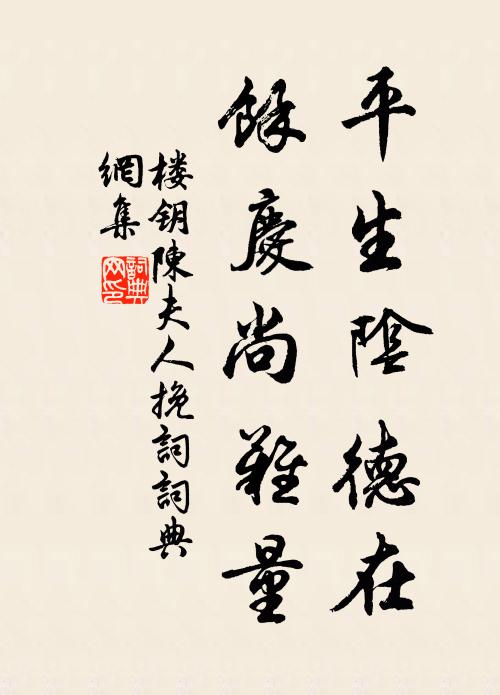 平生陰德在
餘慶尚難量
楼钥陳夫人挽詞詞典
網集
詞典
网印